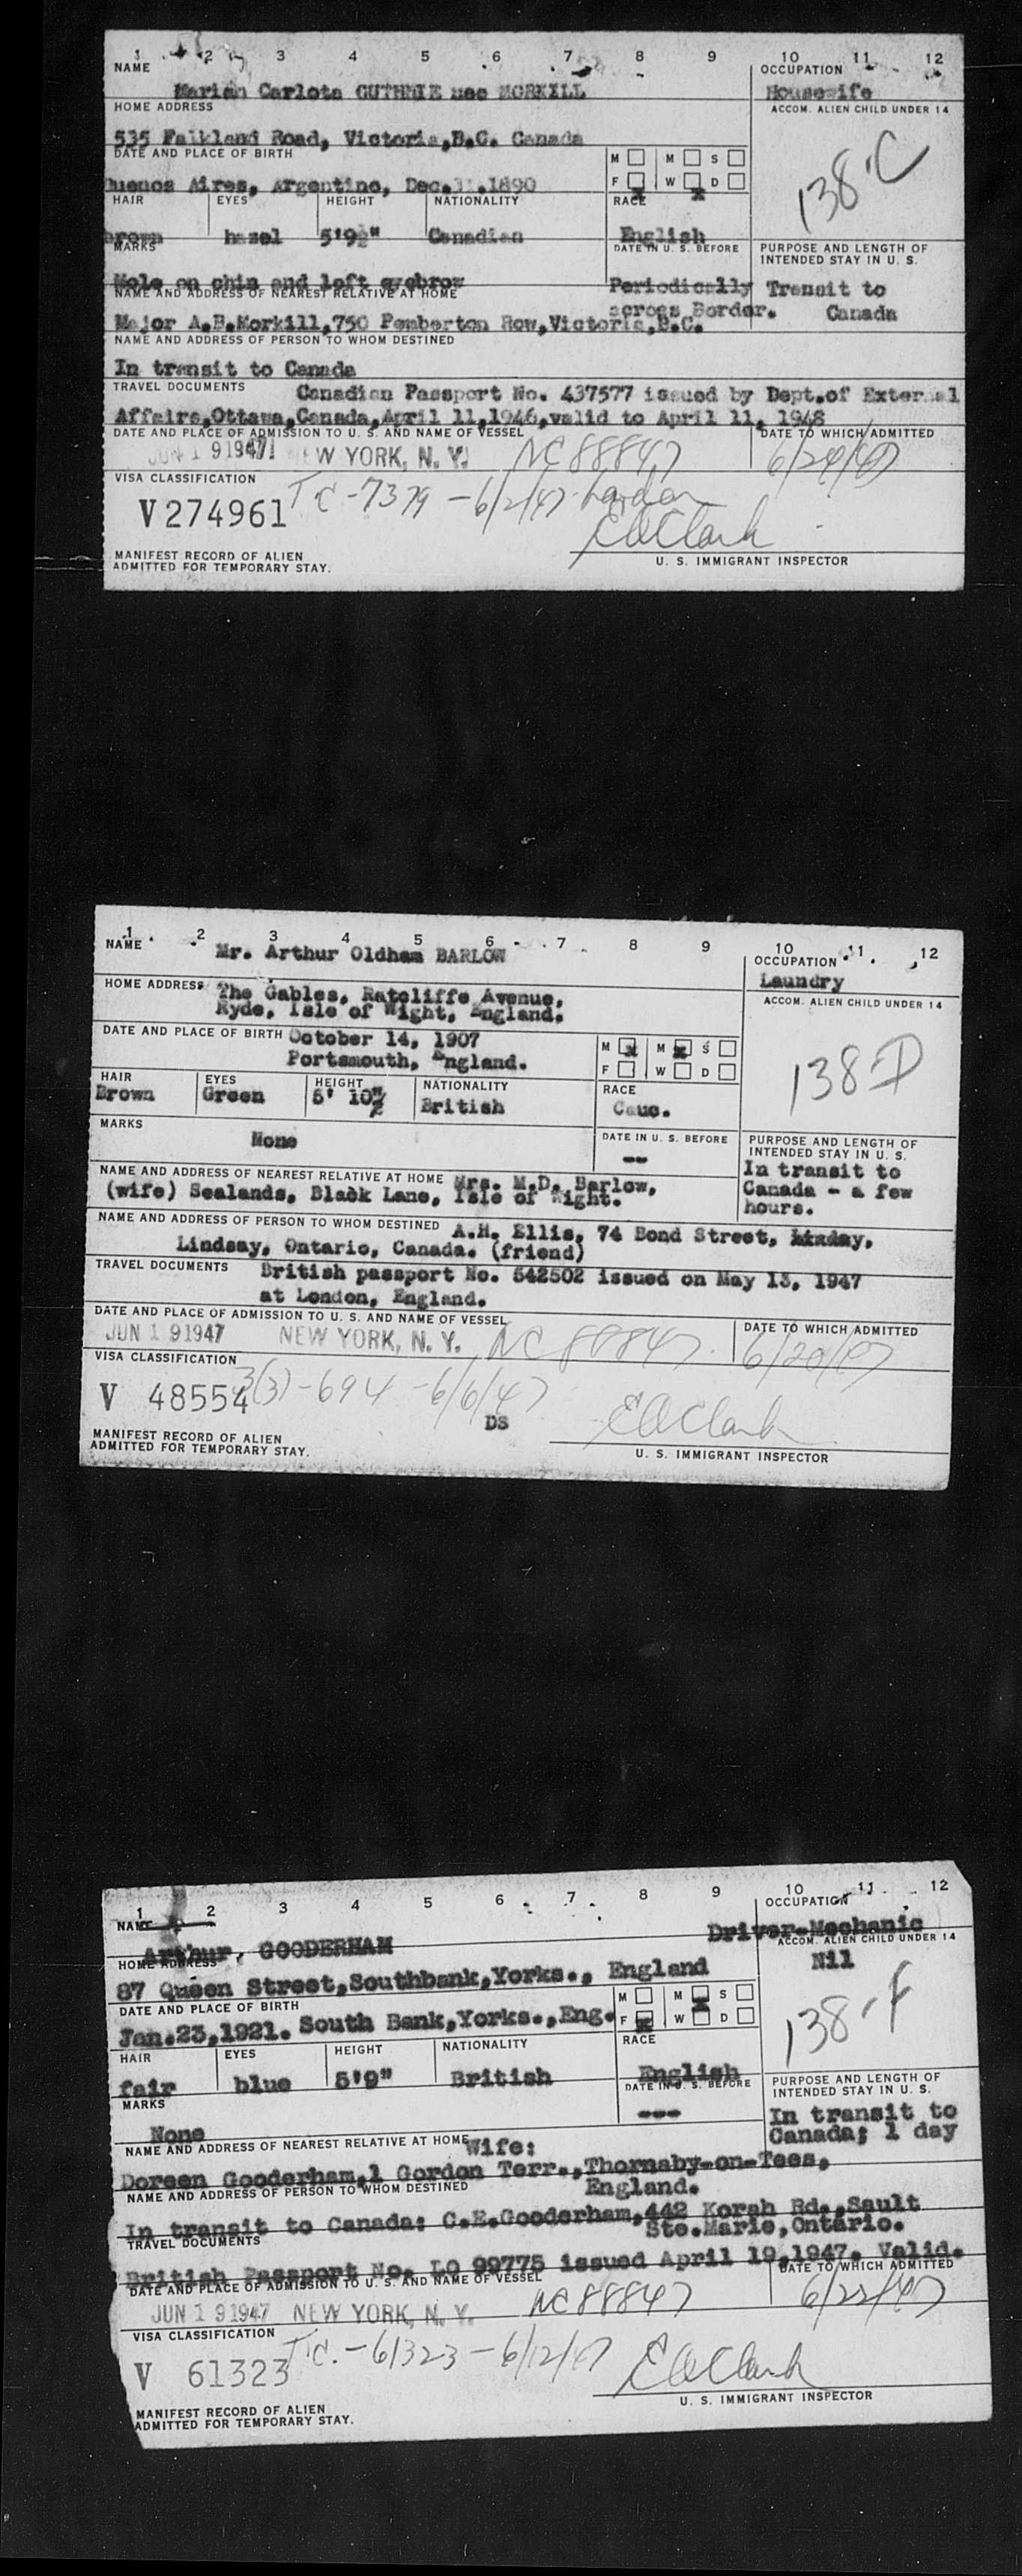 1 2 3 4 5 6 7 8 9 10 11 12
NAME OCCUPATION
Marian Carlota GUTHRIE nee MORKILL Housewife
HOME ADDRESS ACCOM. ALIEN CHILD UNDER 14
535 Falkland Road, Victoria,B.C. Canada
DATE AND PLACE OF BIRTH M M S
138-C
Buenos Aires, Argentine, Dec.31.1890 F W D
HAIR EYES HEIGHT NATIONALITY RACE
brown hazel 5'9½" Canadian English
MARKS DATE IN U. S. BEFORE PURPOSE AND LENGTH OF
INTENDED STAY IN U. S.
Mole on chin and left eyebrow Periodically Transit to
NAME AND ADDRESS OF NEAREST RELATIVE AT HOME across Border. Canada
Major A.B.Morkill,750 Pemberton Row,Victoria,B.C.
NAME AND ADDRESS OF PERSON TO WHOM DESTINED
In transit to Canada
TRAVEL DOCUMENTS Canadian Passport No. 437577 issued by Dept.of External
Affairs,Ottawa,Canada,April 11,1946,valid to April 11, 1948
DATE AND PLACE OF ADMISSION TO U. S. AND NAME OF VESSEL DATE TO WHICH ADMITTED
JUN 1 91947 NEW YORK, N. Y. NC 88847 6/24/47
VISA CLASSIFICATION
V274961 T-C-7379-6/2/47-London
EAClark
MANIFEST RECORD OF ALIEN
ADMITTED FOR TEMPORARY STAY. U. S. IMMIGRANT INSPECTOR
1 2 3 4 5 6 7 8 9 10 11 12
NAME Mr. Arthur Oldham BARLOW OCCUPATION
Laundry
HOME ADDRESS The Gables, Ratcliffe Avenue, ACCOM. ALIEN CHILD UNDER 14
Ryde, Isle of Wight, England.
DATE AND PLACE OF BIRTH October 14, 1907 M M S
Portsmouth, England. F W D
138-D
HAIR EYES HEIGHT NATIONALITY RACE
Brown Green 5' 10½" British Cauc.
MARKS DATE IN U. S. BEFORE PURPOSE AND LENGTH OF
INTENDED STAY IN U. S.
None -- In transit to
NAME AND ADDRESS OF NEAREST RELATIVE AT HOME Mrs. M.D. Barlow, Canada - a few
(wife) Sealands, Black Lane, Isle of Wight. hours.
NAME AND ADDRESS OF PERSON TO WHOM DESTINED A.H. Ellis, 74 Bond Street,
Lindsay, Ontario, Canada. (friend)
TRAVEL DOCUMENTS British passport No. 542502 issued on May 13, 1947
at London, England.
DATE AND PLACE OF ADMISSION TO U. S. AND NAME OF VESSEL DATE TO WHICH ADMITTED
JUN 1 91947 NEW YORK, N. Y. NC 88847 6/20/47
VISA CLASSIFICATION
V 48554 3(3)-694-6/6/47
DS EAClark
MANIFEST RECORD OF ALIEN
ADMITTED FOR TEMPORARY STAY. U. S. IMMIGRANT INSPECTOR
1 2 3 4 5 6 7 8 9 10 11 12
NAME OCCUPATION
Arthur, GOODERHAM Driver-Mechanic
HOME ADDRESS ACCOM. ALIEN CHILD UNDER 14
87 Queen Street,Southbank,Yorks., England Nil
DATE AND PLACE OF BIRTH M M S
Jan.23,1921. South Bank,Yorks.,Eng. F W D
138-F
HAIR EYES HEIGHT NATIONALITY RACE
fair blue 5'9" British English
MARKS DATE IN U. S. BEFORE PURPOSE AND LENGTH OF
INTENDED STAY IN U. S.
None --- In transit to
NAME AND ADDRESS OF NEAREST RELATIVE AT HOME Wife: Canada; 1 day
Doreen Gooderham,1 Gordon Terr.,Thornaby-on-Tees,
NAME AND ADDRESS OF PERSON TO WHOM DESTINED England.
In transit to Canada: C.E.Gooderham,442 Korah Rd.,Sault
TRAVEL DOCUMENTS Ste.Marie,Ontario.
British Passport No. LO 99775 issued April 19,1947. Valid.
DATE AND PLACE OF ADMISSION TO U. S. AND NAME OF VESSEL DATE TO WHICH ADMITTED
JUN 1 91947 NEW YORK, N. Y. NC 88847 6/22/47
VISA CLASSIFICATION
V 61323 T.C.-61323-6/12/47
EAClark
MANIFEST RECORD OF ALIEN
ADMITTED FOR TEMPORARY STAY. U. S. IMMIGRANT INSPECTOR